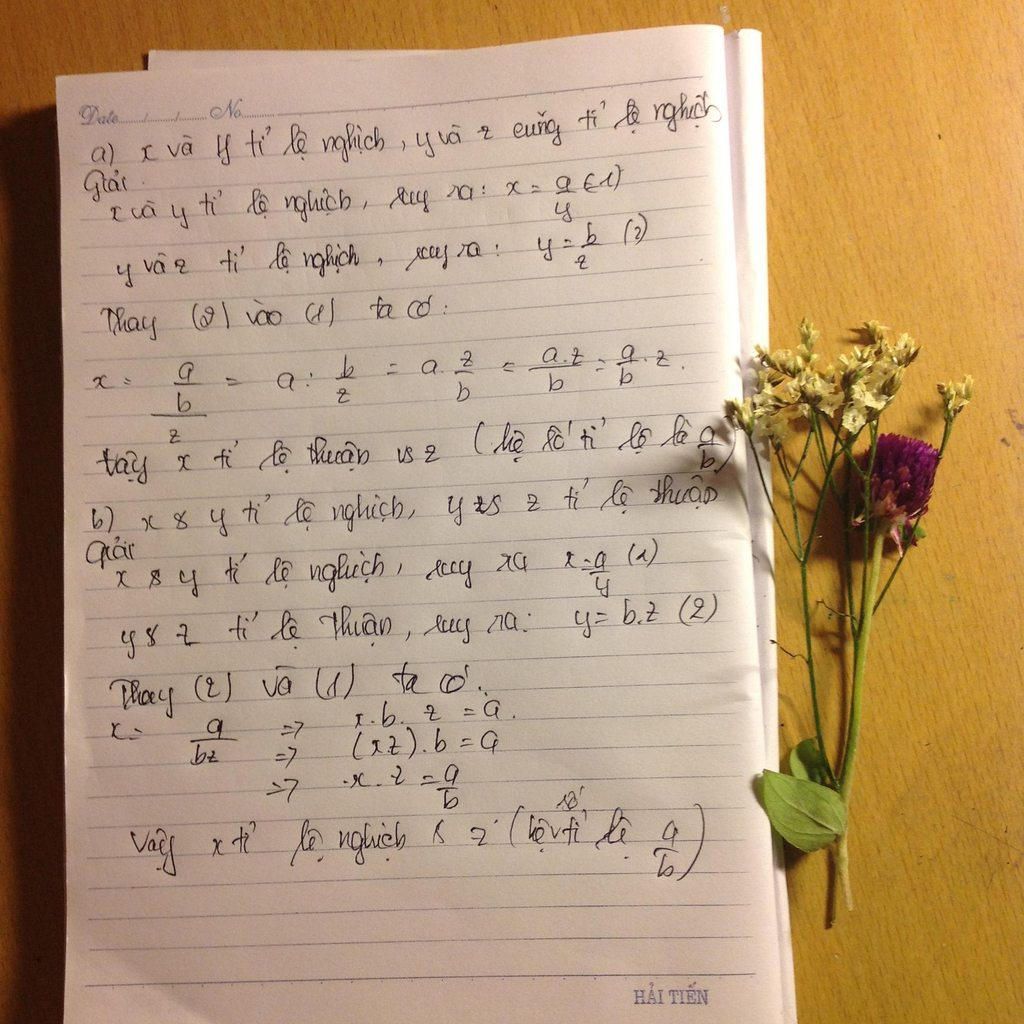 Date / / No
a) x và y tỉ lệ nghịch, y và z cũng tỉ lệ nghịch
Giải
x và y tỉ lệ nghịch, suy ra: x = a/y (1)
y và z tỉ lệ nghịch, suy ra: y = b/z (2)
Thay (2) vào (1) ta có:
x = a/(b/z) = a : b/z = a . z/b = a.z/b = a/b . z.
Vậy x tỉ lệ thuận vs z (hệ số tỉ lệ là a/b)
b) x & y tỉ lệ nghịch, y vs z tỉ lệ thuận
Giải
x & y tỉ lệ nghịch, suy ra x = a/y (1)
y & z tỉ lệ thuận, suy ra: y = b.z (2)
Thay (2) và (1) ta có.
x = a/bz => x.b.z = a.
=> (xz).b = a
=> x.z = a/b
Vậy x tỉ lệ nghịch & z (hệ số tỉ lệ a/b)
HẢI TIẾN